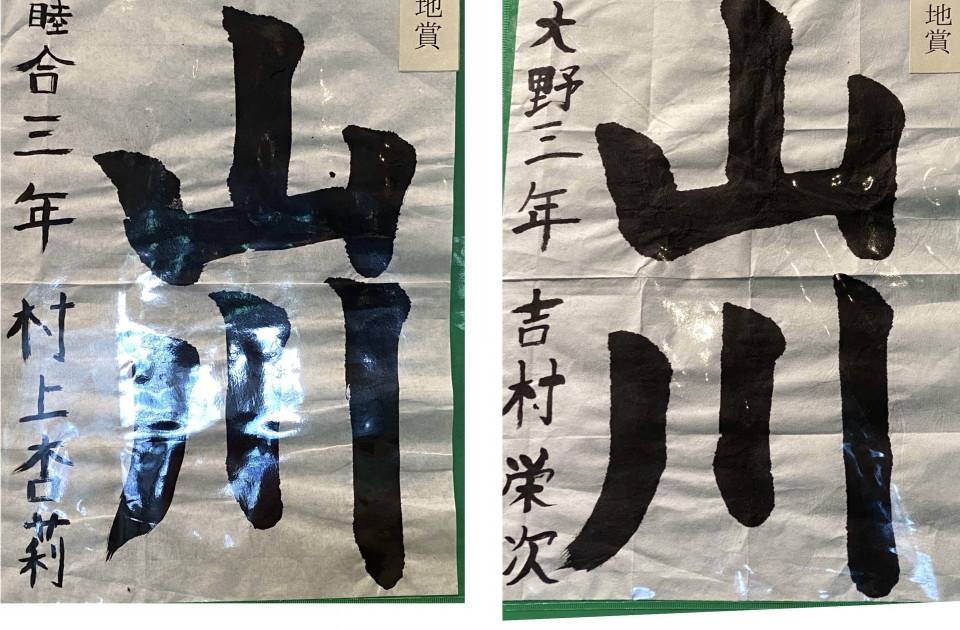 地賞
山川
睦合三年 村上杏莉
地賞
山川
大野三年 吉村栄次